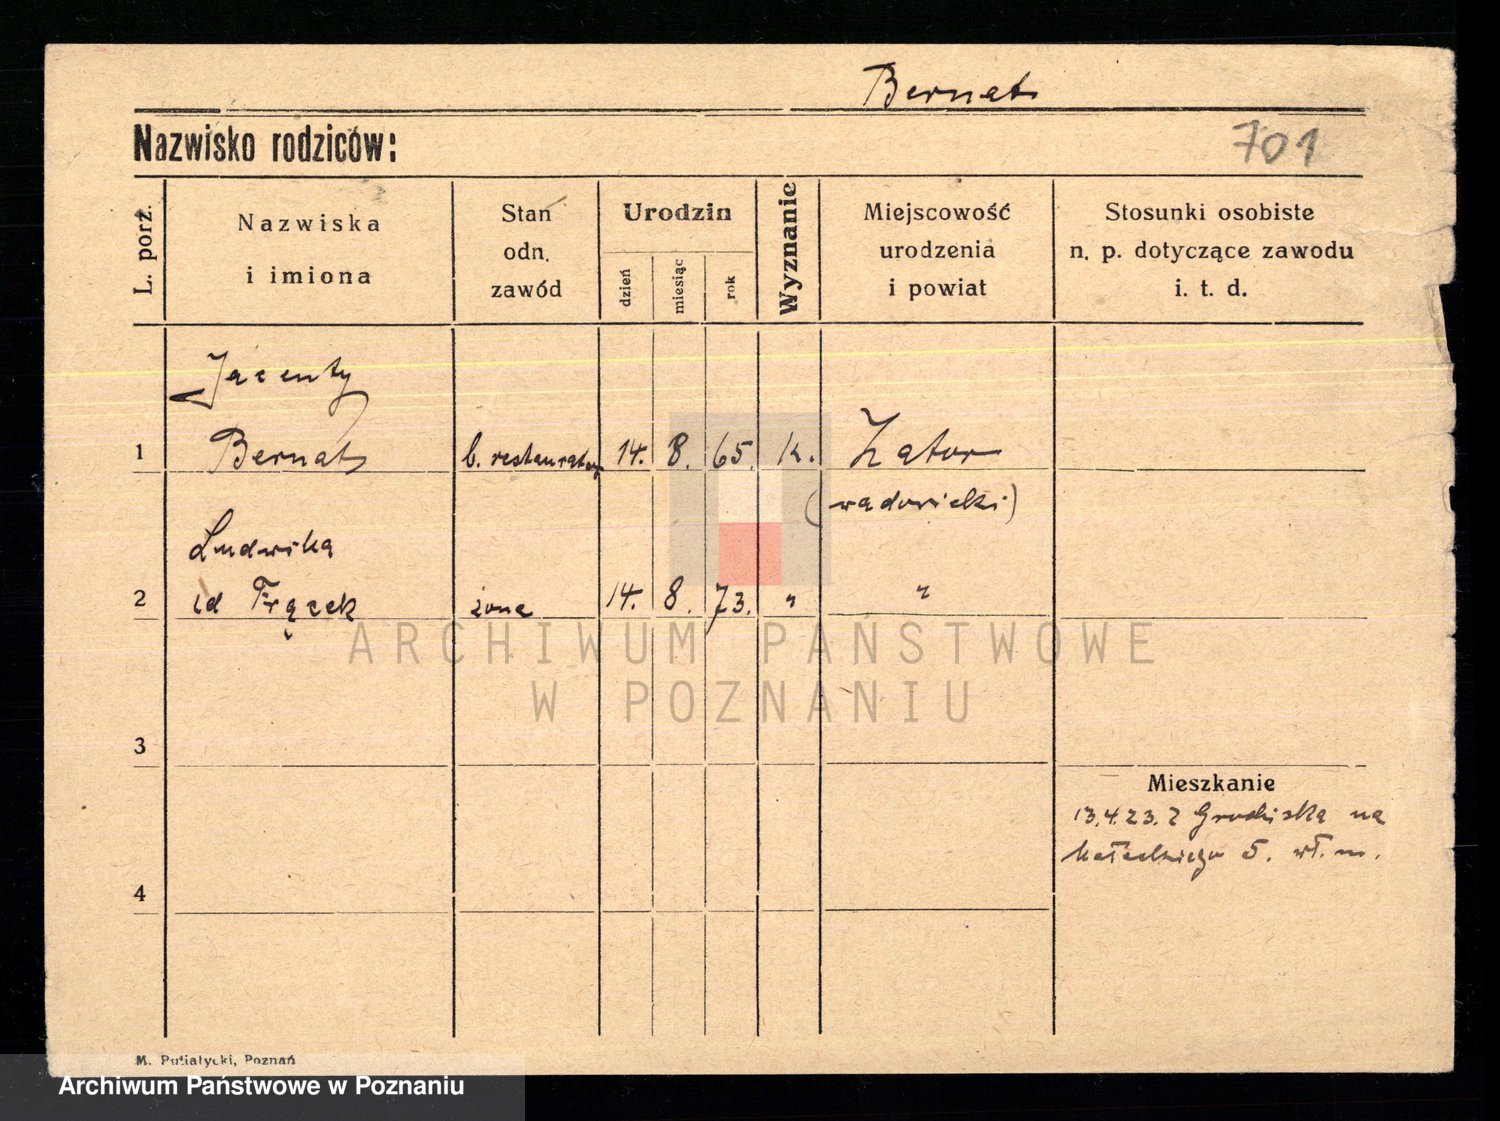 Bernat
Nazwisko rodziców:
701
L. porz.
Nazwiska
i imiona
Stan
odn.
zawód
Urodzin
dzień
miesiąc
rok
Wyznanie
Miejscowość
urodzenia
i powiat
Stosunki osobiste
n. p. dotyczące zawodu
i. t. d.
Jacenty
1 Bernat b. restaurator 14. 8. 65. k. Zator
(wadowicki)
Ludwika
2 id Frącek żona 14. 8. 73. " "
ARCHIWUM PAŃSTWOWE
W POZNANIU
3
Mieszkanie
13.4.23. z Grodziska na
Małeckiego 5. wł. m.
4
M. Putiatycki, Poznań
Archiwum Państwowe w Poznaniu